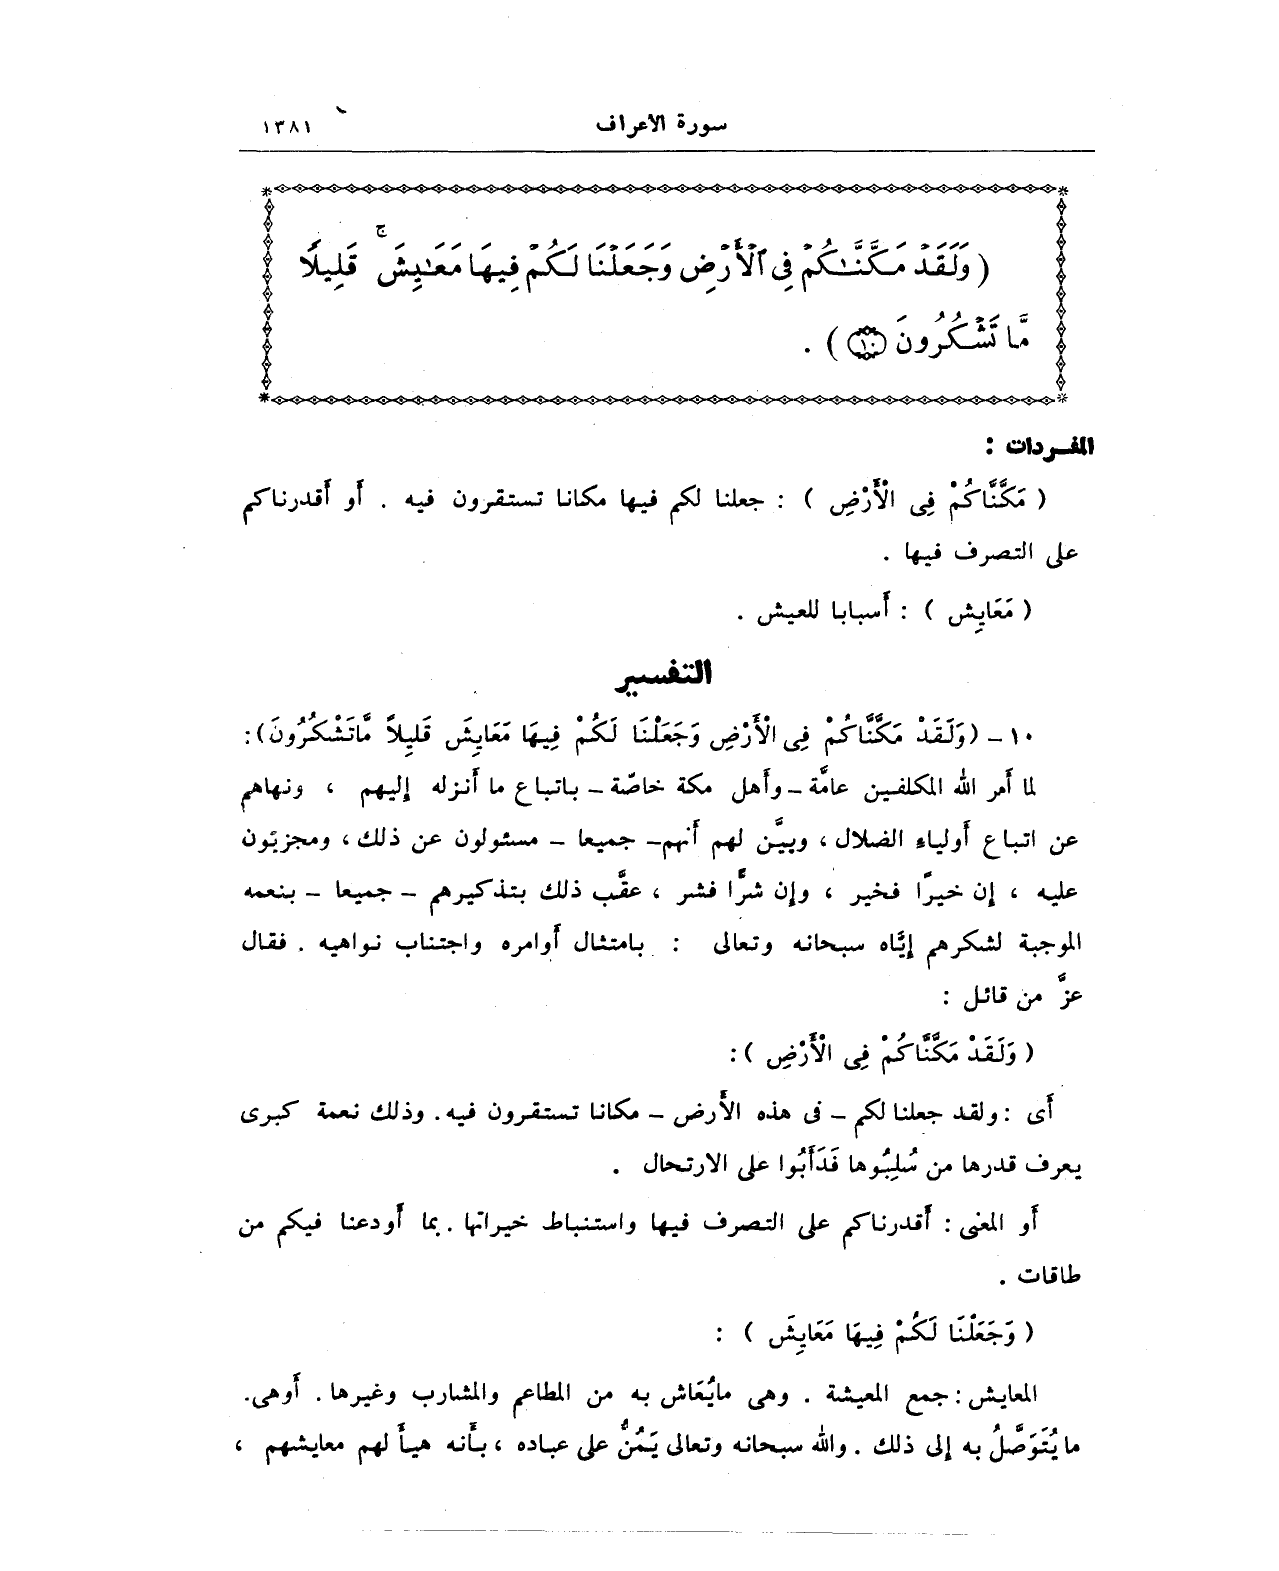 سورة الأعراف ١٣٨١
( وَلَقَدْ مَكَّنَّـٰكُمْ فِى ٱلْأَرْضِ وَجَعَلْنَا لَكُمْ فِيهَا مَعَـٰيِشَ ۚ قَلِيلًا
مَّا تَشْكُرُونَ ١٠ ) .
المفردات :
( مَكَّنَّاكُمْ فِى الْأَرْضِ ) : جعلنا لكم فيها مكانا تستقرون فيه . أو أقدرناكم
على التصرف فيها .
( مَعَايِش ) : أسبابا للعيش .
التفسير
١٠ - (وَلَقَدْ مَكَّنَّاكُمْ فِى الْأَرْضِ وَجَعَلْنَا لَكُمْ فِيهَا مَعَايِشَ قَلِيلاً مَّاتَشْكُرُونَ):
لما أمر الله المكلفين عامَّة - وأهل مكة خاصّة - باتباع ما أنزله إليهم ، ونهاهم
عن اتباع أولياء الضلال ، وبيَّن لهم أنهم - جميعا - مسئولون عن ذلك ، ومجزيّون
عليه ، إن خيرًا فخير ، وإن شرًّا فشر ، عقَّب ذلك بتذكيرهم - جميعا - بنعمه
الموجبة لشكرهم إيَّاه سبحانه وتعالى : بامتثال أوامره واجتناب نواهيه . فقال
عزَّ من قائل :
( وَلَقَدْ مَكَّنَّاكُمْ فِى الْأَرْضِ ) :
أى : ولقد جعلنا لكم - فى هذه الأرض - مكانا تستقرون فيه . وذلك نعمة كبرى
يعرف قدرها من سُلِبُوها فَدَأَبُوا على الارتحال .
أو المعنى : أقدرناكم على التصرف فيها واستنباط خيراتها . بما أودعنا فيكم من
طاقات .
( وَجَعَلْنَا لَكُمْ فِيهَا مَعَايِشَ ) :
المعايش : جمع المعيشة . وهى مايُعَاش به من المطاعم والمشارب وغيرها . أوهى.
ما يُتَوَصَّلُ به إلى ذلك . والله سبحانه وتعالى يَمُنُّ على عباده ، بأنه هيأ لهم معايشهم ،